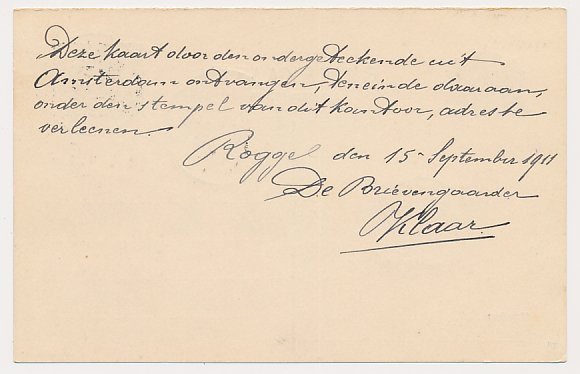 Deze kaart door den ondergeteekende uit
Amsterdam ontvangen, teneinde daaraan,
onder den stempel van dit kantoor, adres te
verleenen.
Roggel den 15 September 1911
De Brievengaarder
Klaar.